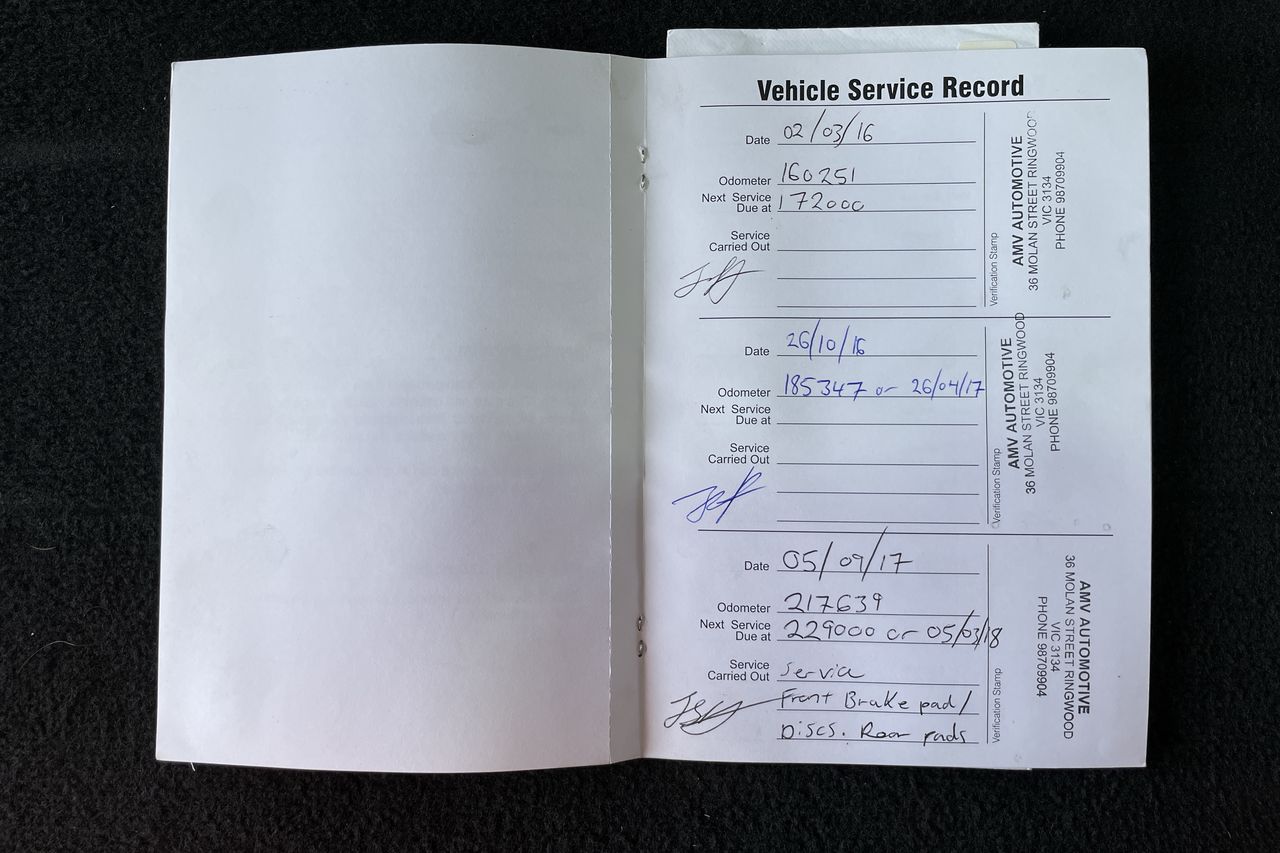 Vehicle Service Record
Date 02/03/16
Odometer 160251
Next Service
Due at 172000
Service
Carried Out
Verification Stamp
AMV AUTOMOTIVE
36 MOLAN STREET RINGWOOD
VIC 3134
PHONE 98709904
Date 26/10/16
Odometer 185347 or 26/04/17
Next Service
Due at
Service
Carried Out
Verification Stamp
AMV AUTOMOTIVE
36 MOLAN STREET RINGWOOD
VIC 3134
PHONE 98709904
Date 05/09/17
Odometer 217639
Next Service
Due at 229000 or 05/03/18
Service
Carried Out Service
Front Brake pad/
Discs. Rear pads
Verification Stamp
AMV AUTOMOTIVE
36 MOLAN STREET RINGWOOD
VIC 3134
PHONE 98709904